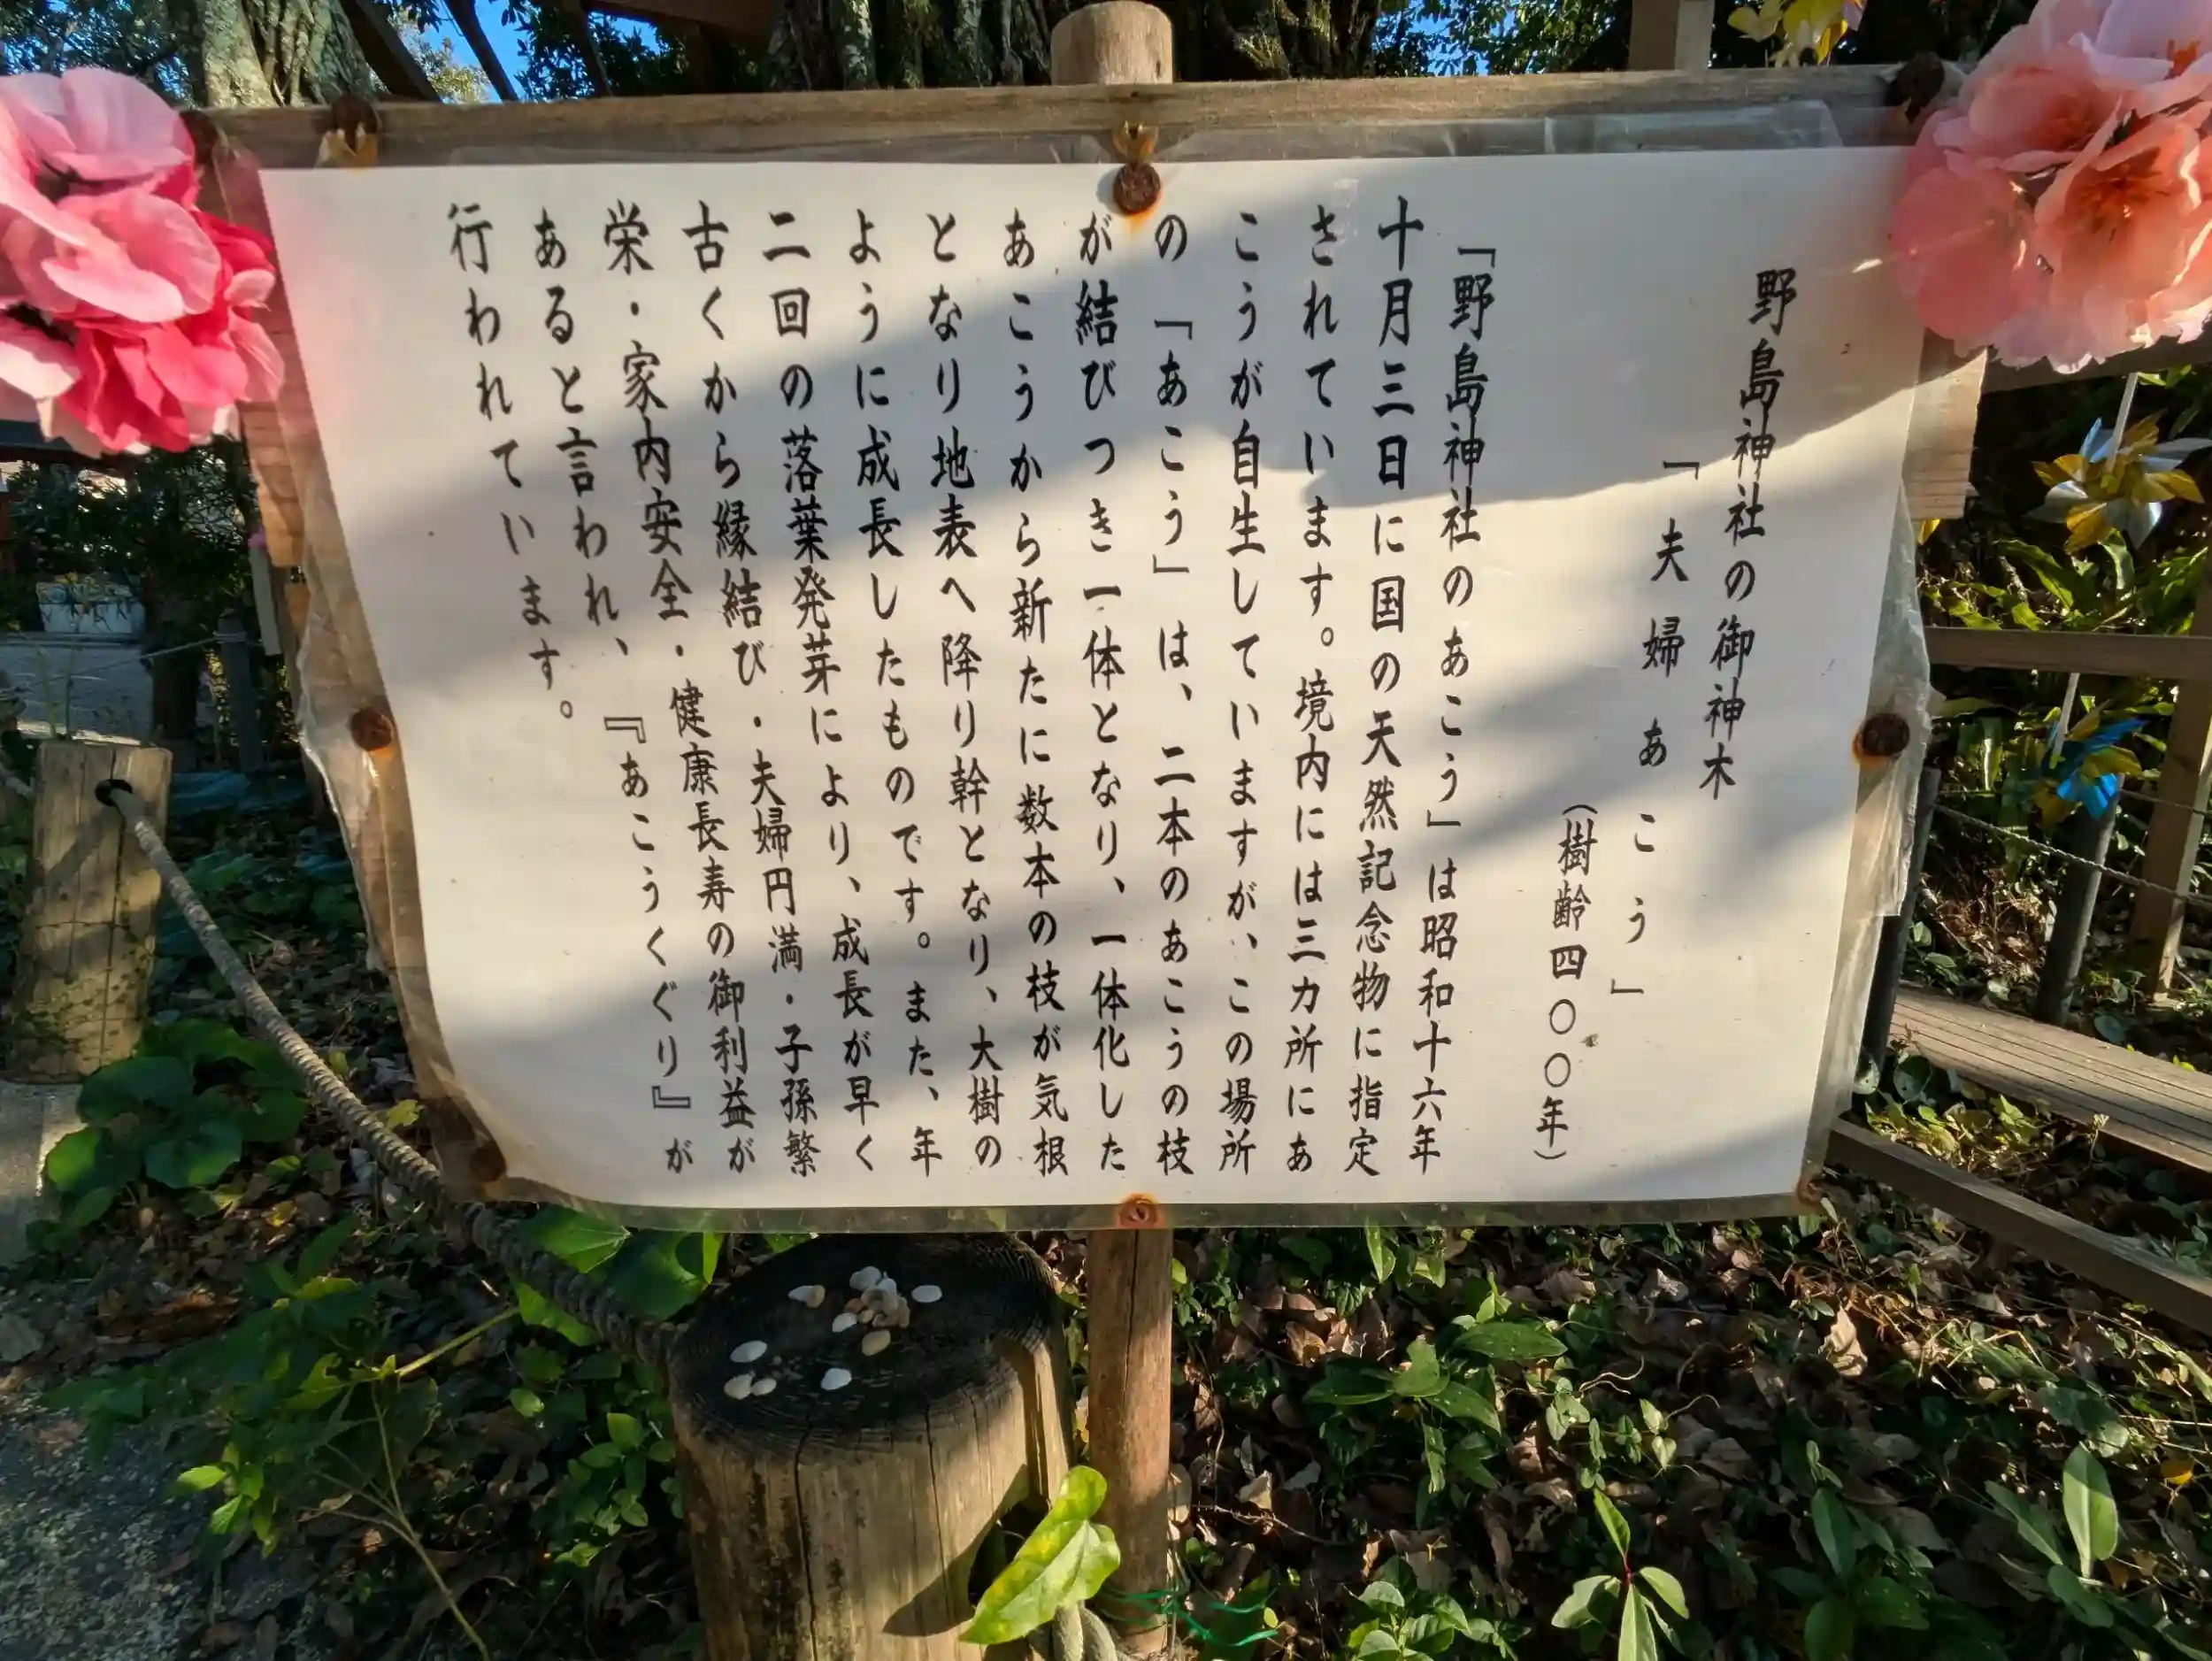 野島神社の御神木
「夫婦あこう」
（樹齢四〇〇年）
「野島神社のあこう」は昭和十六年
十月三日に国の天然記念物に指定
されています。境内には三カ所にあ
こうが自生していますが、この場所
の「あこう」は、二本のあこうの枝
が結びつき一体となり、一体化した
あこうから新たに数本の枝が気根
となり地表へ降り幹となり、大樹の
ように成長したものです。また、年
二回の落葉発芽により、成長が早く
古くから縁結び・夫婦円満・子孫繁
栄・家内安全・健康長寿の御利益が
あると言われ、『あこうくぐり』が
行われています。